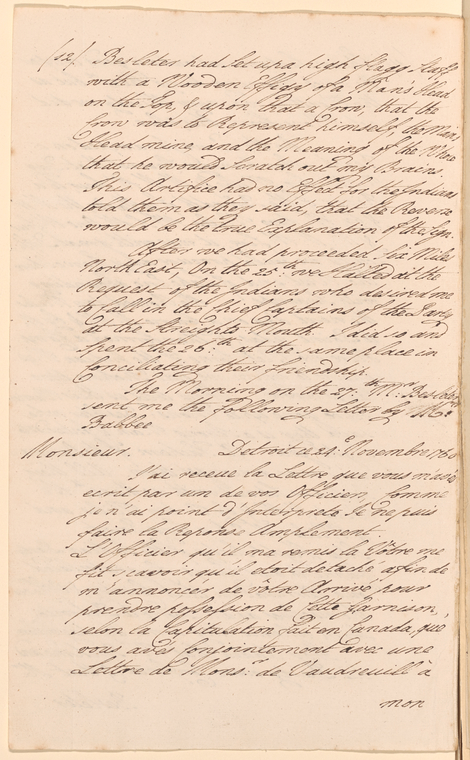 (12) Besleter had Set up a high Flagg Staff
with a Wooden Effigy of a Mans Head
on the Top, & upon that a Crow, that the
Crow was to Represent himself, the Mans
Head mine, and the Meaning of the Whole
that he would Scratch out my Brains.
This Artifice has no Effect for the Indians
told them as they said, that the Reverse
would be the true Explanation of the Sign.
After we had proceeded Six Miles
North East, On the 25.th we Halted at the
Request of the Indians who desired me
to call in the Chief Captains of the Party
at the Streights Mouth. I did so and
Spent the 26.th at the same place in
Conciliating their Friendship.
The Morning on the 27.th Mr. Besleter
sent me the following Letter by Mr.
Babbee
Monsieur. Detroit ce 24.e Novembre 1760
J'ai receue la Lettre que vous m'avés
ecrit par un de vos Officiers, Comme
je n'ai point d'Interprete Je ne puis
faire la Reponse Amplement.
L'Officier qu'il ma remis la Vôtre me
fit scavoir qu'il etoit detaché afin de
m'annoncer de vôtre Arrivé pour
prendre possession de Cette Garnison,
selon la Capitulation fait en Canada, que
vous avés Conjointement avec une
Lettre de Mons.r de Vaudreuill à
mon